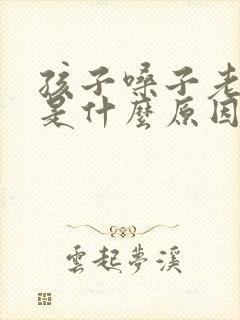 孩子嗓子老
是什麼原因
雲起夢溪